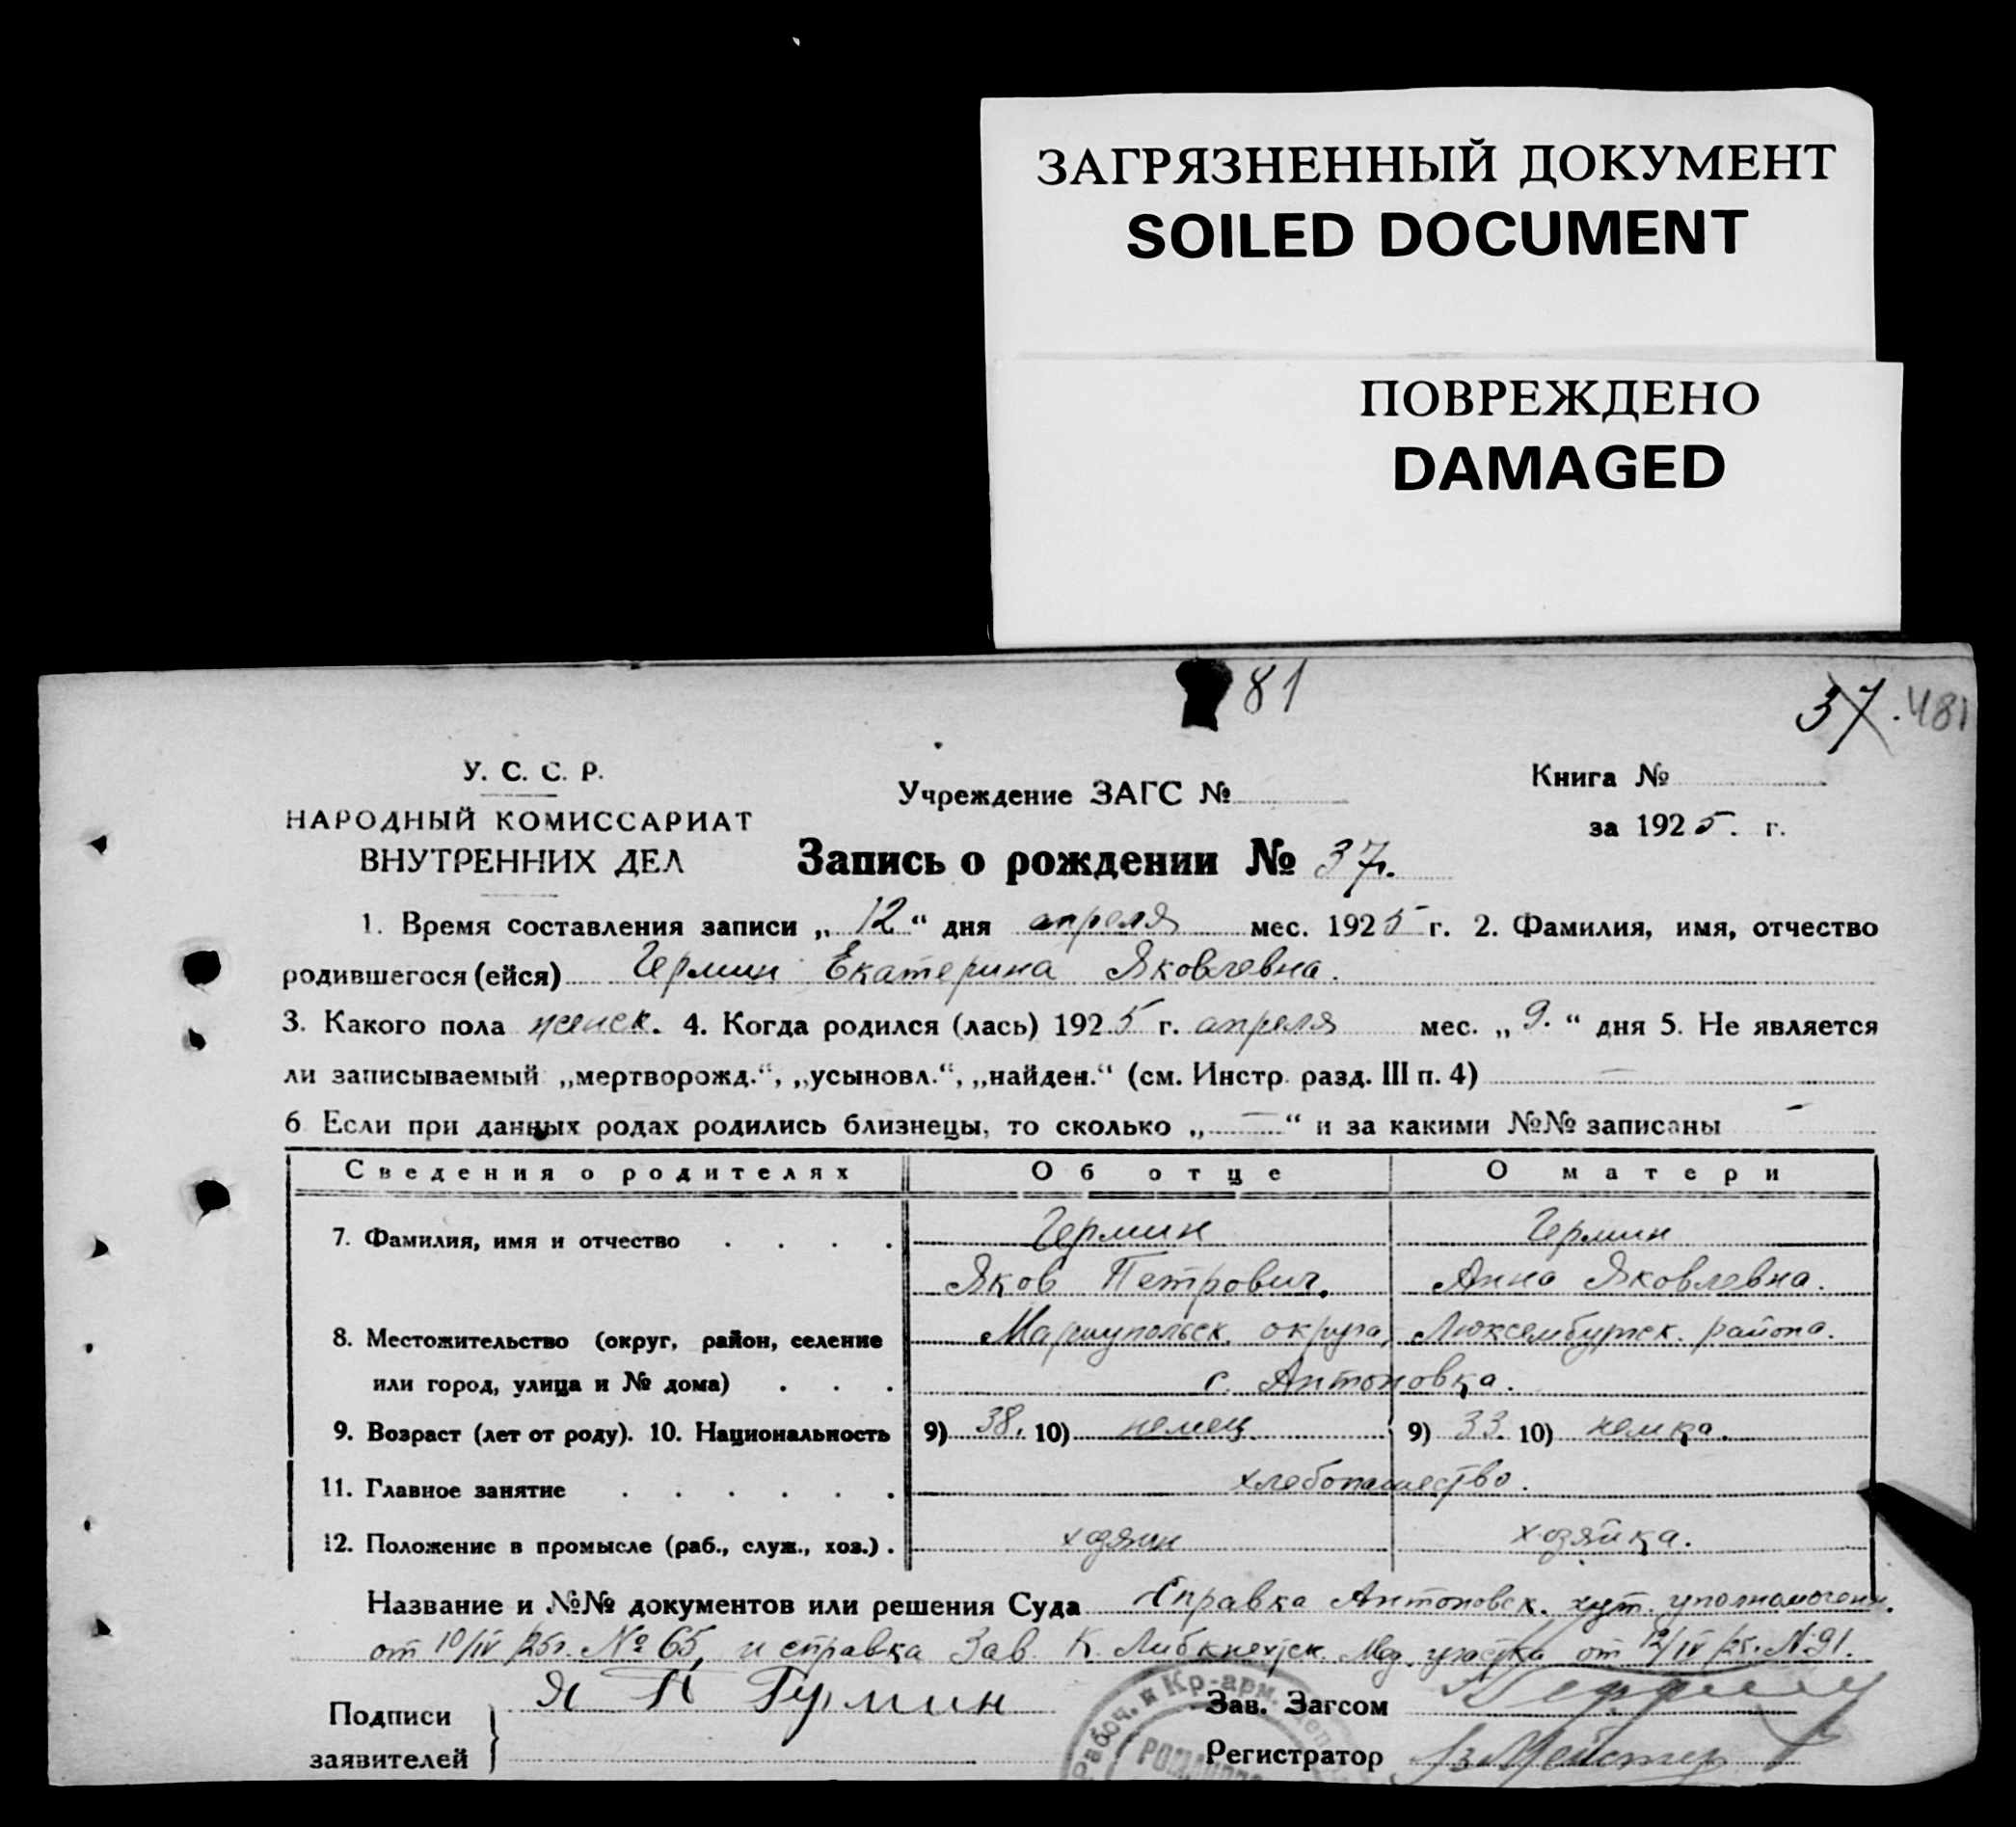 ЗАГРЯЗНЕННЫЙ ДОКУМЕНТ
SOILED DOCUMENT
ПОВРЕЖДЕНО
DAMAGED
81
37. 481
У. С. С. Р.
НАРОДНЫЙ КОМИССАРИАТ
ВНУТРЕННИХ ДЕЛ
Учреждение ЗАГС №
Книга №
за 1925. г.
Запись о рождении № 37.
1. Время составления записи „ 12 “ дня апреля мес. 1925 г. 2. Фамилия, имя, отчество
родившегося (ейся) Гермин Екатерина Яковлевна.
3. Какого пола женск. 4. Когда родился (лась) 1925 г. апреля мес. „ 9. “ дня 5. Не является
ли записываемый „мертворожд.“, „усыновл.“, „найден.“ (см. Инстр. разд. III п. 4) —
6 Если при данных родах родились близнецы, то сколько „ — “ и за какими №№ записаны —
Сведения о родителях Об отце О матери
7. Фамилия, имя и отчество . . . . Гермин Гермин
Яков Петрович. Анна Яковлевна.
8. Местожительство (округ, район, селение Мариупольск. округа, Люксембургск. района.
или город, улица и № дома) . . . с. Антоновка.
9. Возраст (лет от роду). 10. Национальность 9) 38. 10) немец 9) 33. 10) немка.
11. Главное занятие . . . . . . хлебопашество.
12. Положение в промысле (раб., служ., хоз.) . хозяин хозяйка.
Название и №№ документов или решения Суда Справка Антоновск. хут. уполномочен.
от 10/IV/25г. № 65, и справка Зав. К. Либкнехтск. Мед. участка от 12/IV/25. N. 91.
Подписи
заявителей
Я П Гермин
Рабоч. и Кр-арм.
Зав. Загсом
Регистратор